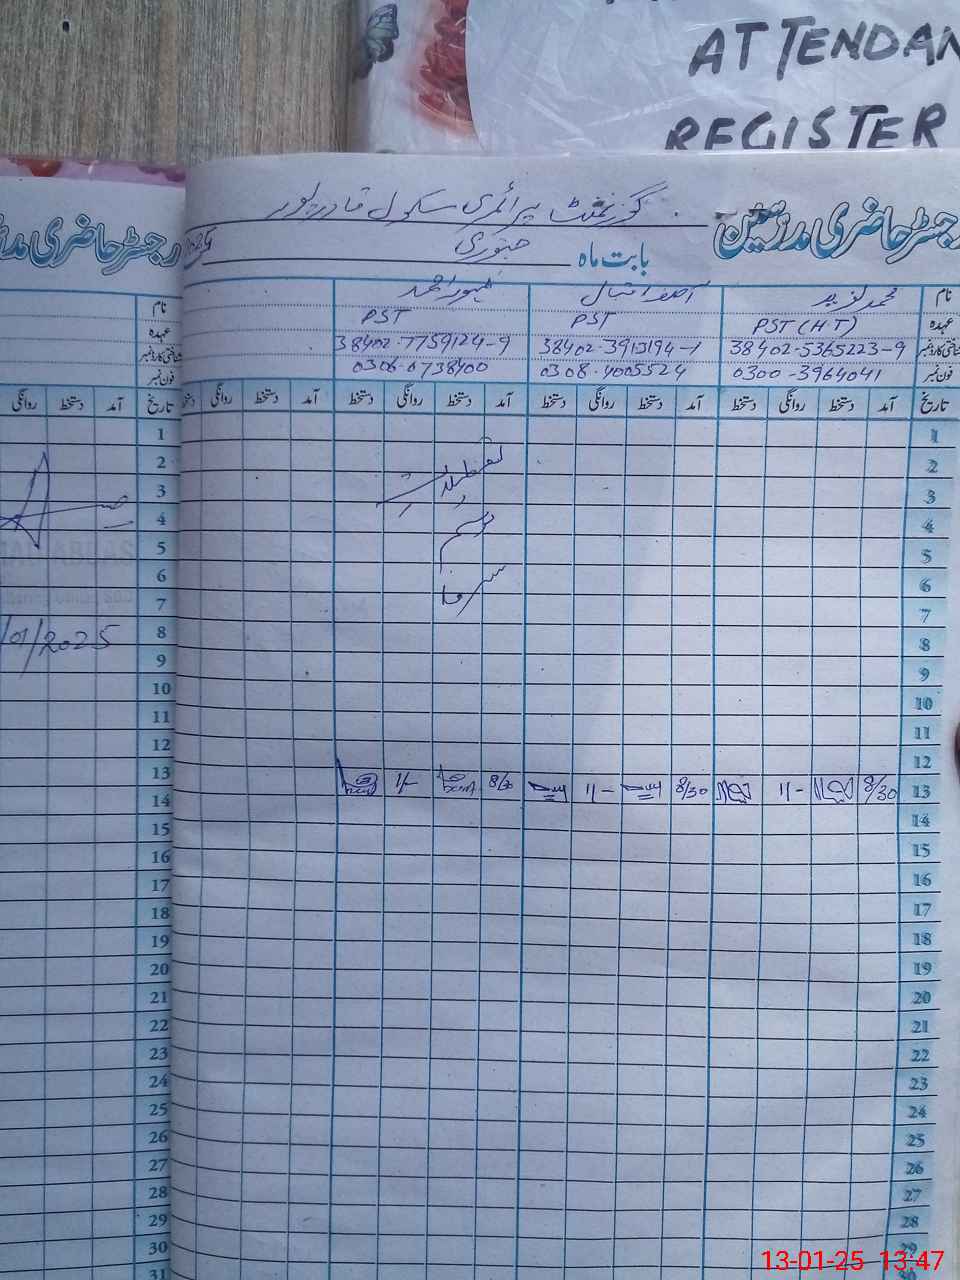 ATTENDAN
REGISTER
رجسٹر حاضری مدرسین
گورنمنٹ پرائمری سکول قادرپور
بابت ماہ جنوری
نام محمد نوید آصف اقبال ظہور احمد
عہدہ PST (H.T) PST PST
شناختی کارڈ نمبر 38402-5365223-9 38402-3913194-1 38402-7759124-9
فون نمبر 0300-3964041 0308-4005524 0306-6738400
تاریخ آمد دستخط روانگی دستخط آمد دستخط روانگی دستخط آمد دستخط روانگی دستخط آمد دستخط روانگی دستخط
1
2
3
4
5
6
7
8
9
10
11
12
13 8/30 11- 8/30 11- 8/30 1/-
14
15
16
17
18
19
20
21
22
23
24
25
26
27
28
29
30
رجسٹر حاضری مدر
نام
عہدہ
شناختی کارڈ نمبر
فون نمبر
تاریخ آمد دستخط روانگی
1
2
3
4
5
6
7
8 /01/2025
9
10
11
12
13
14
15
16
17
18
19
20
21
22
23
24
25
26
27
28
29
30
31
13-01-25 13:47